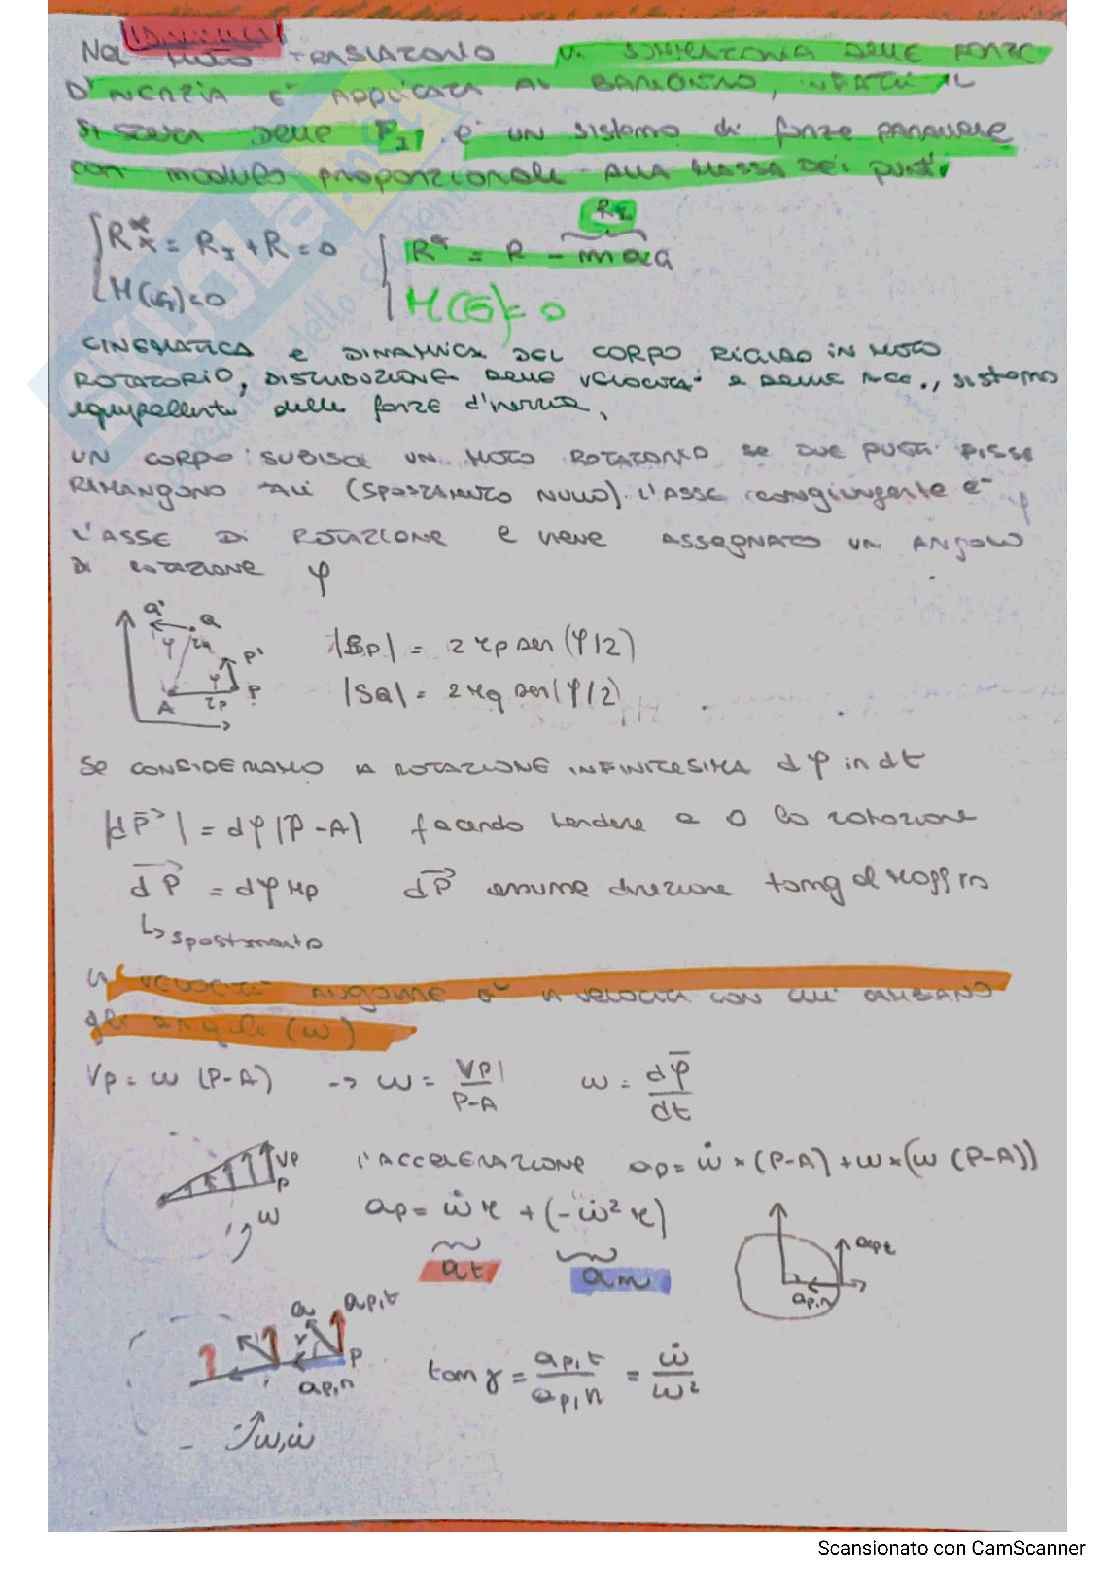 Nel MOTO TRASLATORIO LA SOMMATORIA DELLE FORZE
D'INERZIA E' APPLICATA AL BARICENTRO, INFATTI IL
SISTEMA DELLE F_I è UN sistema di forze parallele
con modulo proporzionale alla massa dei punti
R* = R_I + R = 0
M(G)=0
R_I
R* = R - m a_G
M(G)= 0
CINEMATICA e DINAMICA DEL CORPO RIGIDO IN MOTO
ROTATORIO, DISTRIBUZIONE delle velocità e delle Acc., sistema
equipollente delle forze d'inerzia.
UN CORPO SUBISCE UN MOTO ROTATORIO se DUE PUNTI FISSI
RIMANGONO TALI (SPOSTAMENTO NULLO). L'ASSE congiungente è
L'ASSE DI ROTAZIONE e viene ASSEGNATO UN ANGOLO
DI ROTAZIONE φ
Q' Q φ r_Q P' φ A r_P P
|S_P| = 2 r_P sen(φ/2)
|SQ| = 2 r_Q sen(φ/2)
Se CONSIDERIAMO LA ROTAZIONE INFINITESIMA dφ in dt
|dP| = dφ |P-A| facendo tendere a 0 la rotazione
dP = dφ r_P dP assume direzione tang al raggio
↳ spostamento
LA VELOCITÀ ANGOLARE è LA velocità con cui CAMBIANO
gli angoli (ω)
V_P = ω (P-A) -> ω = V_P| / P-A ω = dφ / dt
V_P P ω
L'ACCELERAZIONE a_P = ω̇ × (P-A) + ω × (ω (P-A))
a_P = ω̇ r + (-ω² r)
a_t a_n
a_pt a_p,n
a a_P,t γ P a_P,n
tan γ = a_P,t / a_P,n = ω̇ / ω²
ω, ω̇
Scansionato con CamScanner